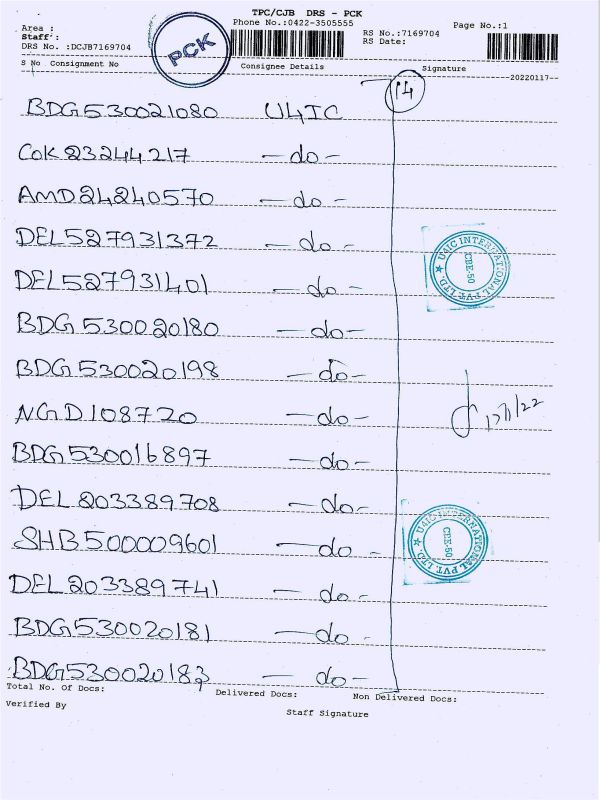 TPC/CJB DRS - PCK
Phone No.:0422-3505555
Page No.:1
Area :
Staff :
DRS No. :DCJB7169704
RS No.:7169704
RS Date:
PCK
S No Consignment No Consignee Details Signature
--20220117--
14
BDG530021080 U4IC
COK23244217 -do-
AMD24240570 -do-
DEL527931372 -do-
DEL527931401 -do-
BDG530020180 -do-
BDG530020198 -do-
NGD108720 -do-
BDG530016897 -do-
DEL203389708 -do-
SHB500009601 -do-
DEL203389741 -do-
BDG530020181 -do-
BDG530020183 -do-
U4IC INTERNATIONAL PVT. LTD. ★
CBE-50
17/1/22
U4IC INTERNATIONAL PVT. LTD. ★
CBE-50
Total No. Of Docs: Delivered Docs: Non Delivered Docs:
Verified By Staff Signature